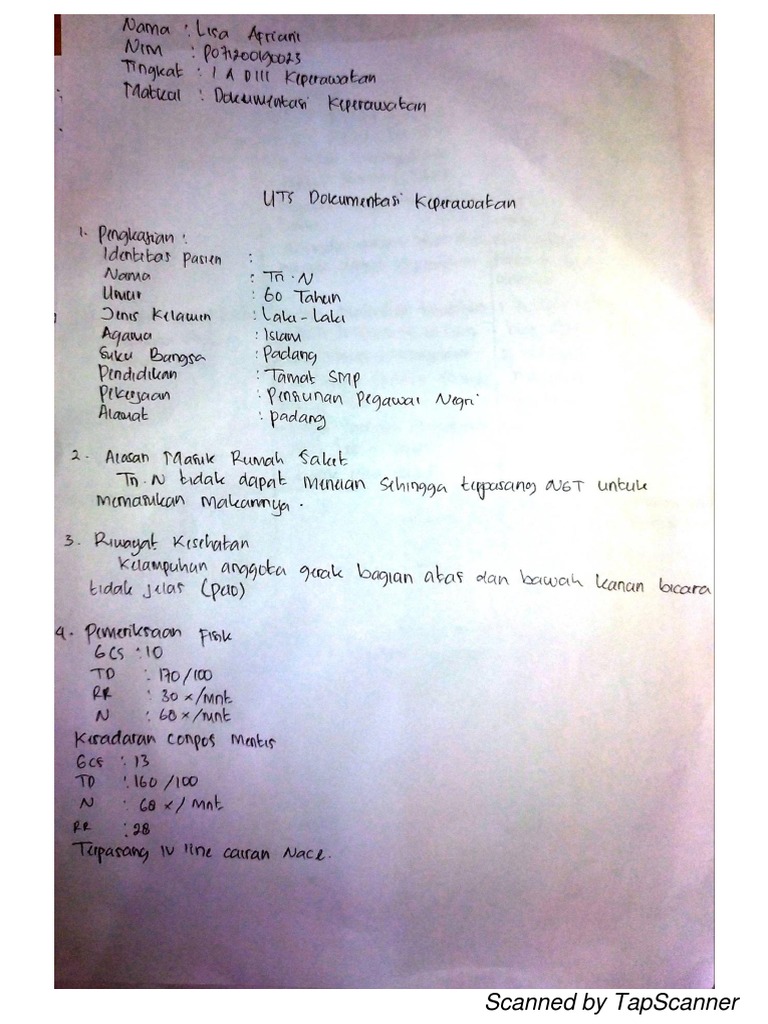 Nama : Lisa Apriani
NIM : P071200190023
Tingkat : 1 A DIII Keperawatan
Matkul : Dokumentasi Keperawatan
UTS Dokumentasi Keperawatan
1. Pengkajian :
Identitas pasien :
Nama : Tn. N
Umur : 60 Tahun
Jenis Kelamin : Laki-Laki
Agama : Islam
Suku Bangsa : Padang
Pendidikan : Tamat SMP
Pekerjaan : Pensiunan Pegawai Negri
Alamat : padang
2. Alasan Masuk Rumah Sakit
Tn. N tidak dapat menelan sehingga terpasang NGT untuk
memasukan makannya.
3. Riwayat Kesehatan
Kelumpuhan anggota gerak bagian atas dan bawah kanan bicara
tidak jelas (pelo)
4. Pemeriksaan Fisik
GCS : 10
TD : 170/100
RR : 30 x/mnt
N : 60 x/mnt
Kesadaran conpos mentis
GCS : 13
TD : 160/100
N : 68 x/mnt
RR : 28
Terpasang IV line cairan Nacl.
Scanned by TapScanner